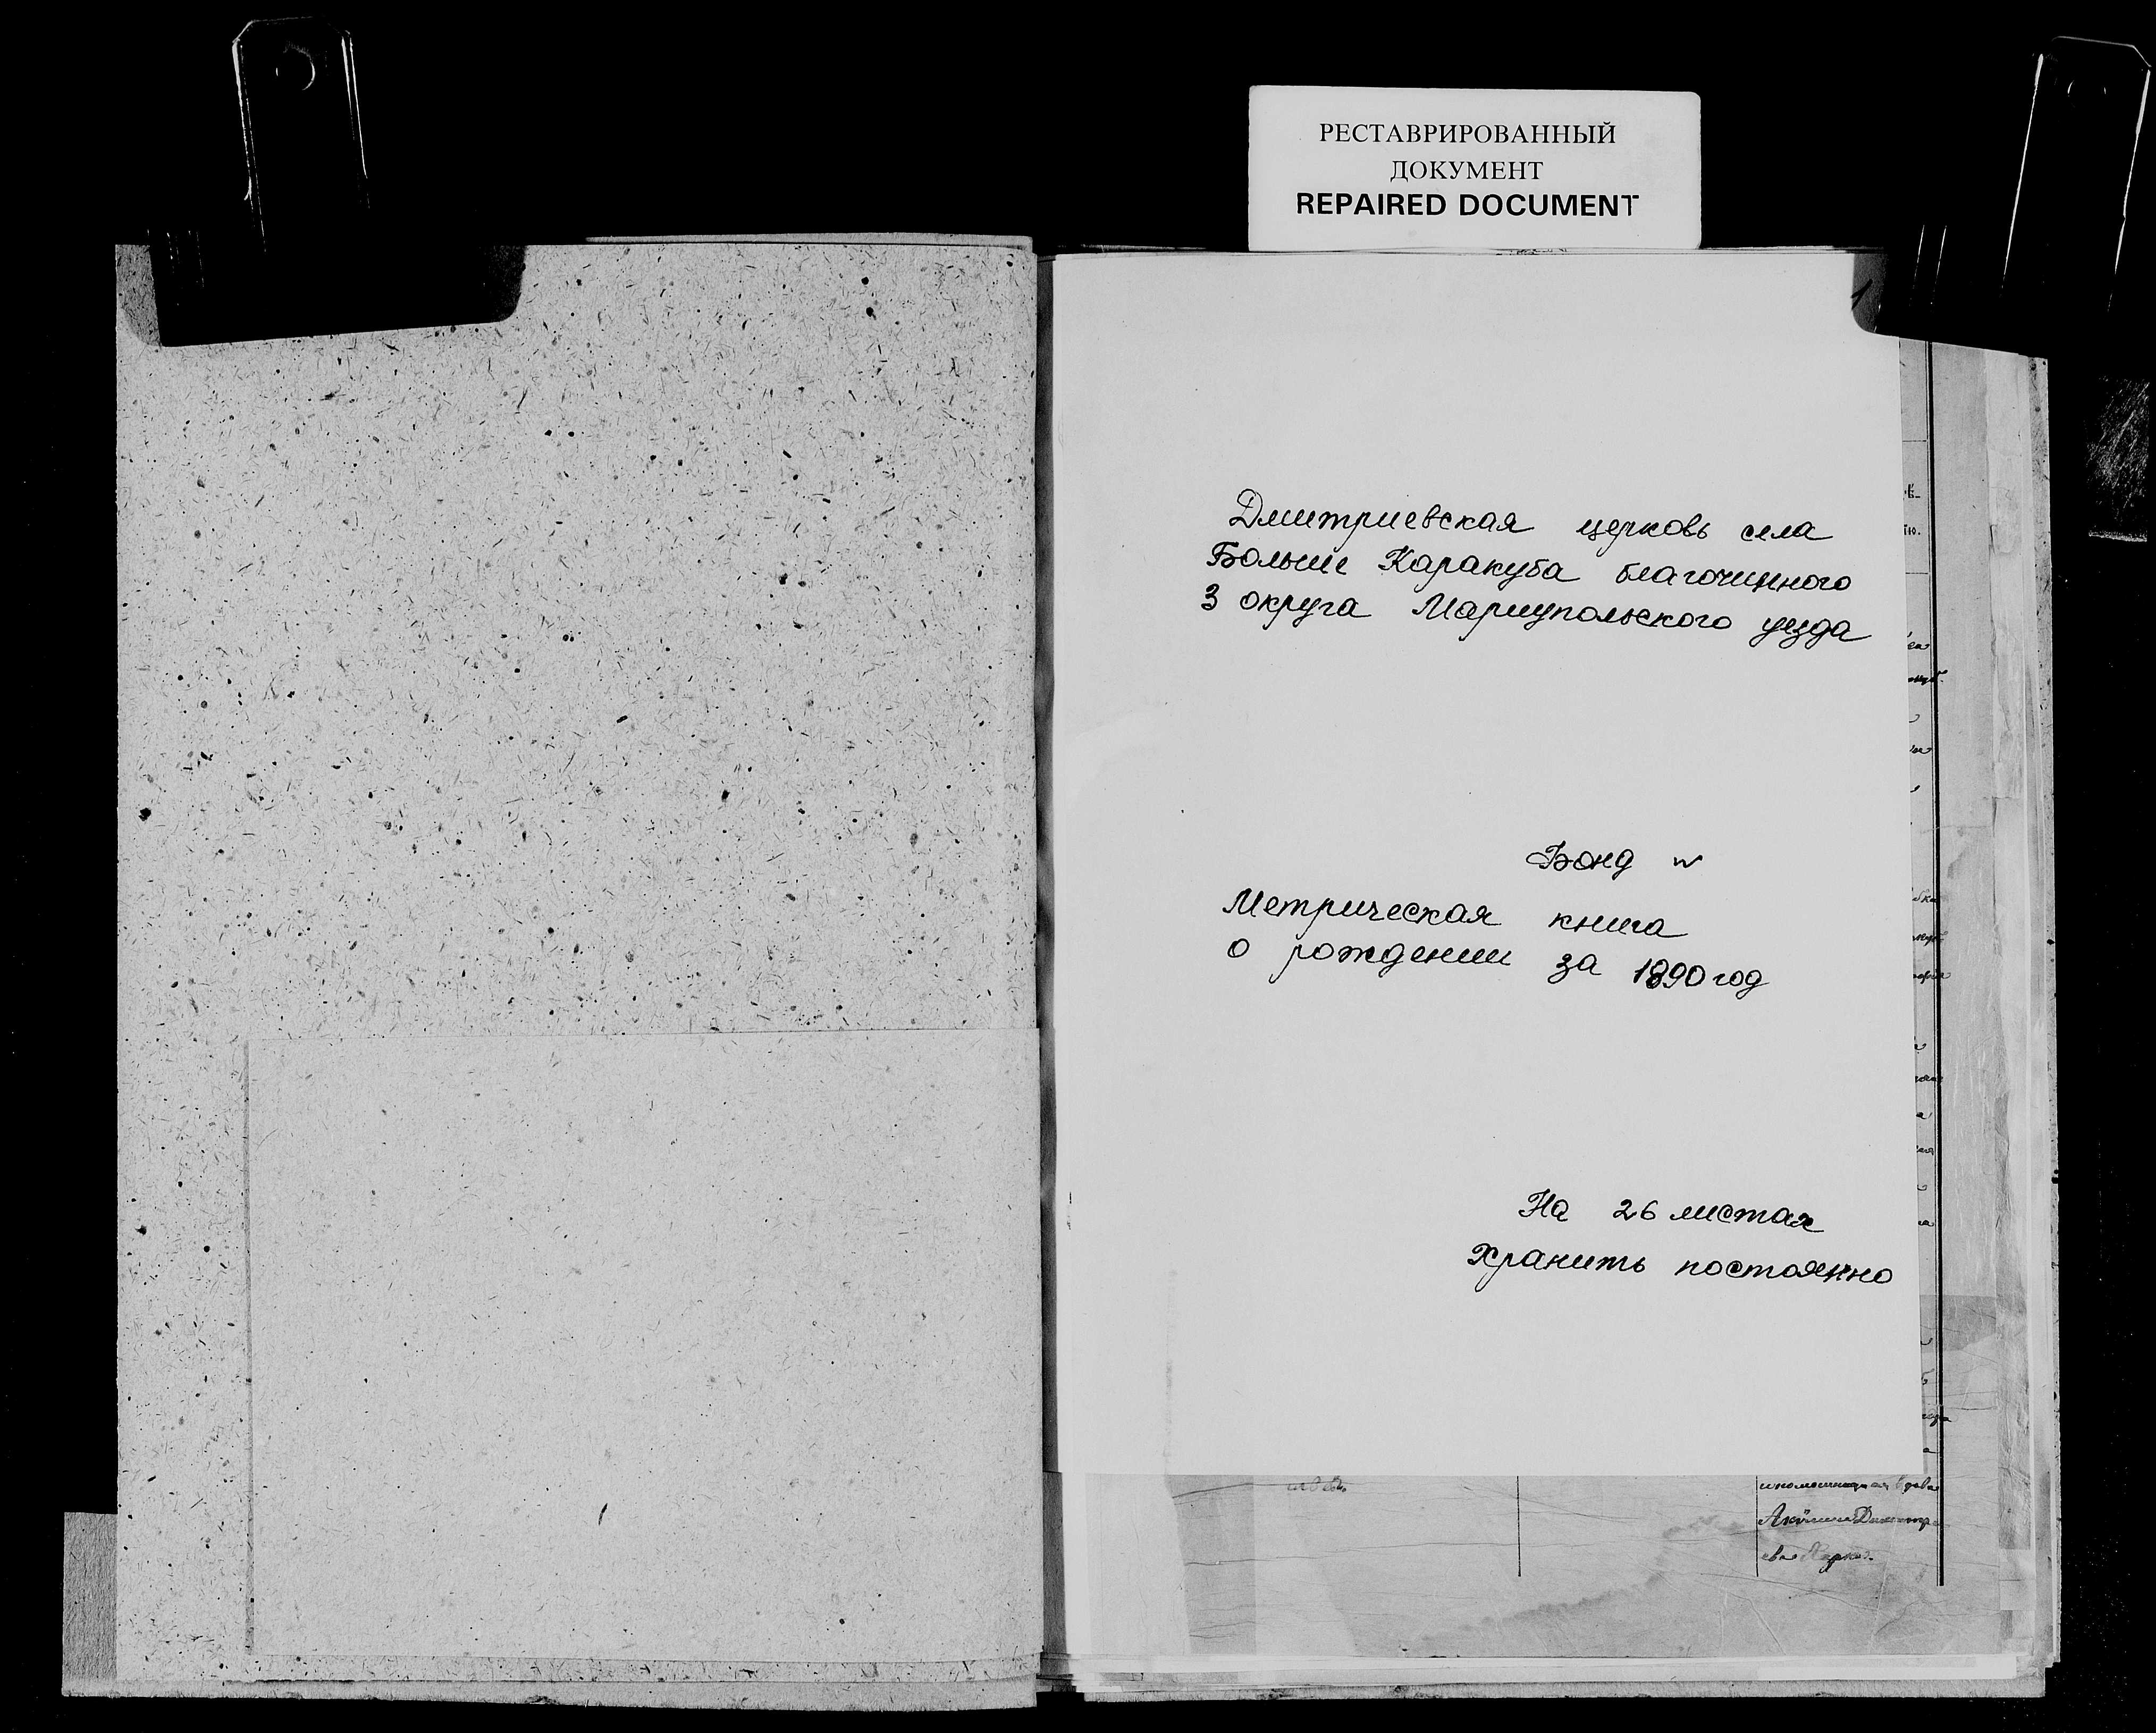 РЕСТАВРИРОВАННЫЙ
ДОКУМЕНТ
REPAIRED DOCUMENT
1
Дмитриевская церковь села
Больше Каракуба благочинного
3 округа Мариупольского уезда
Фонд
Метрическая книга
о рождении за 1890 год
На 26 листах
Хранить постоянно